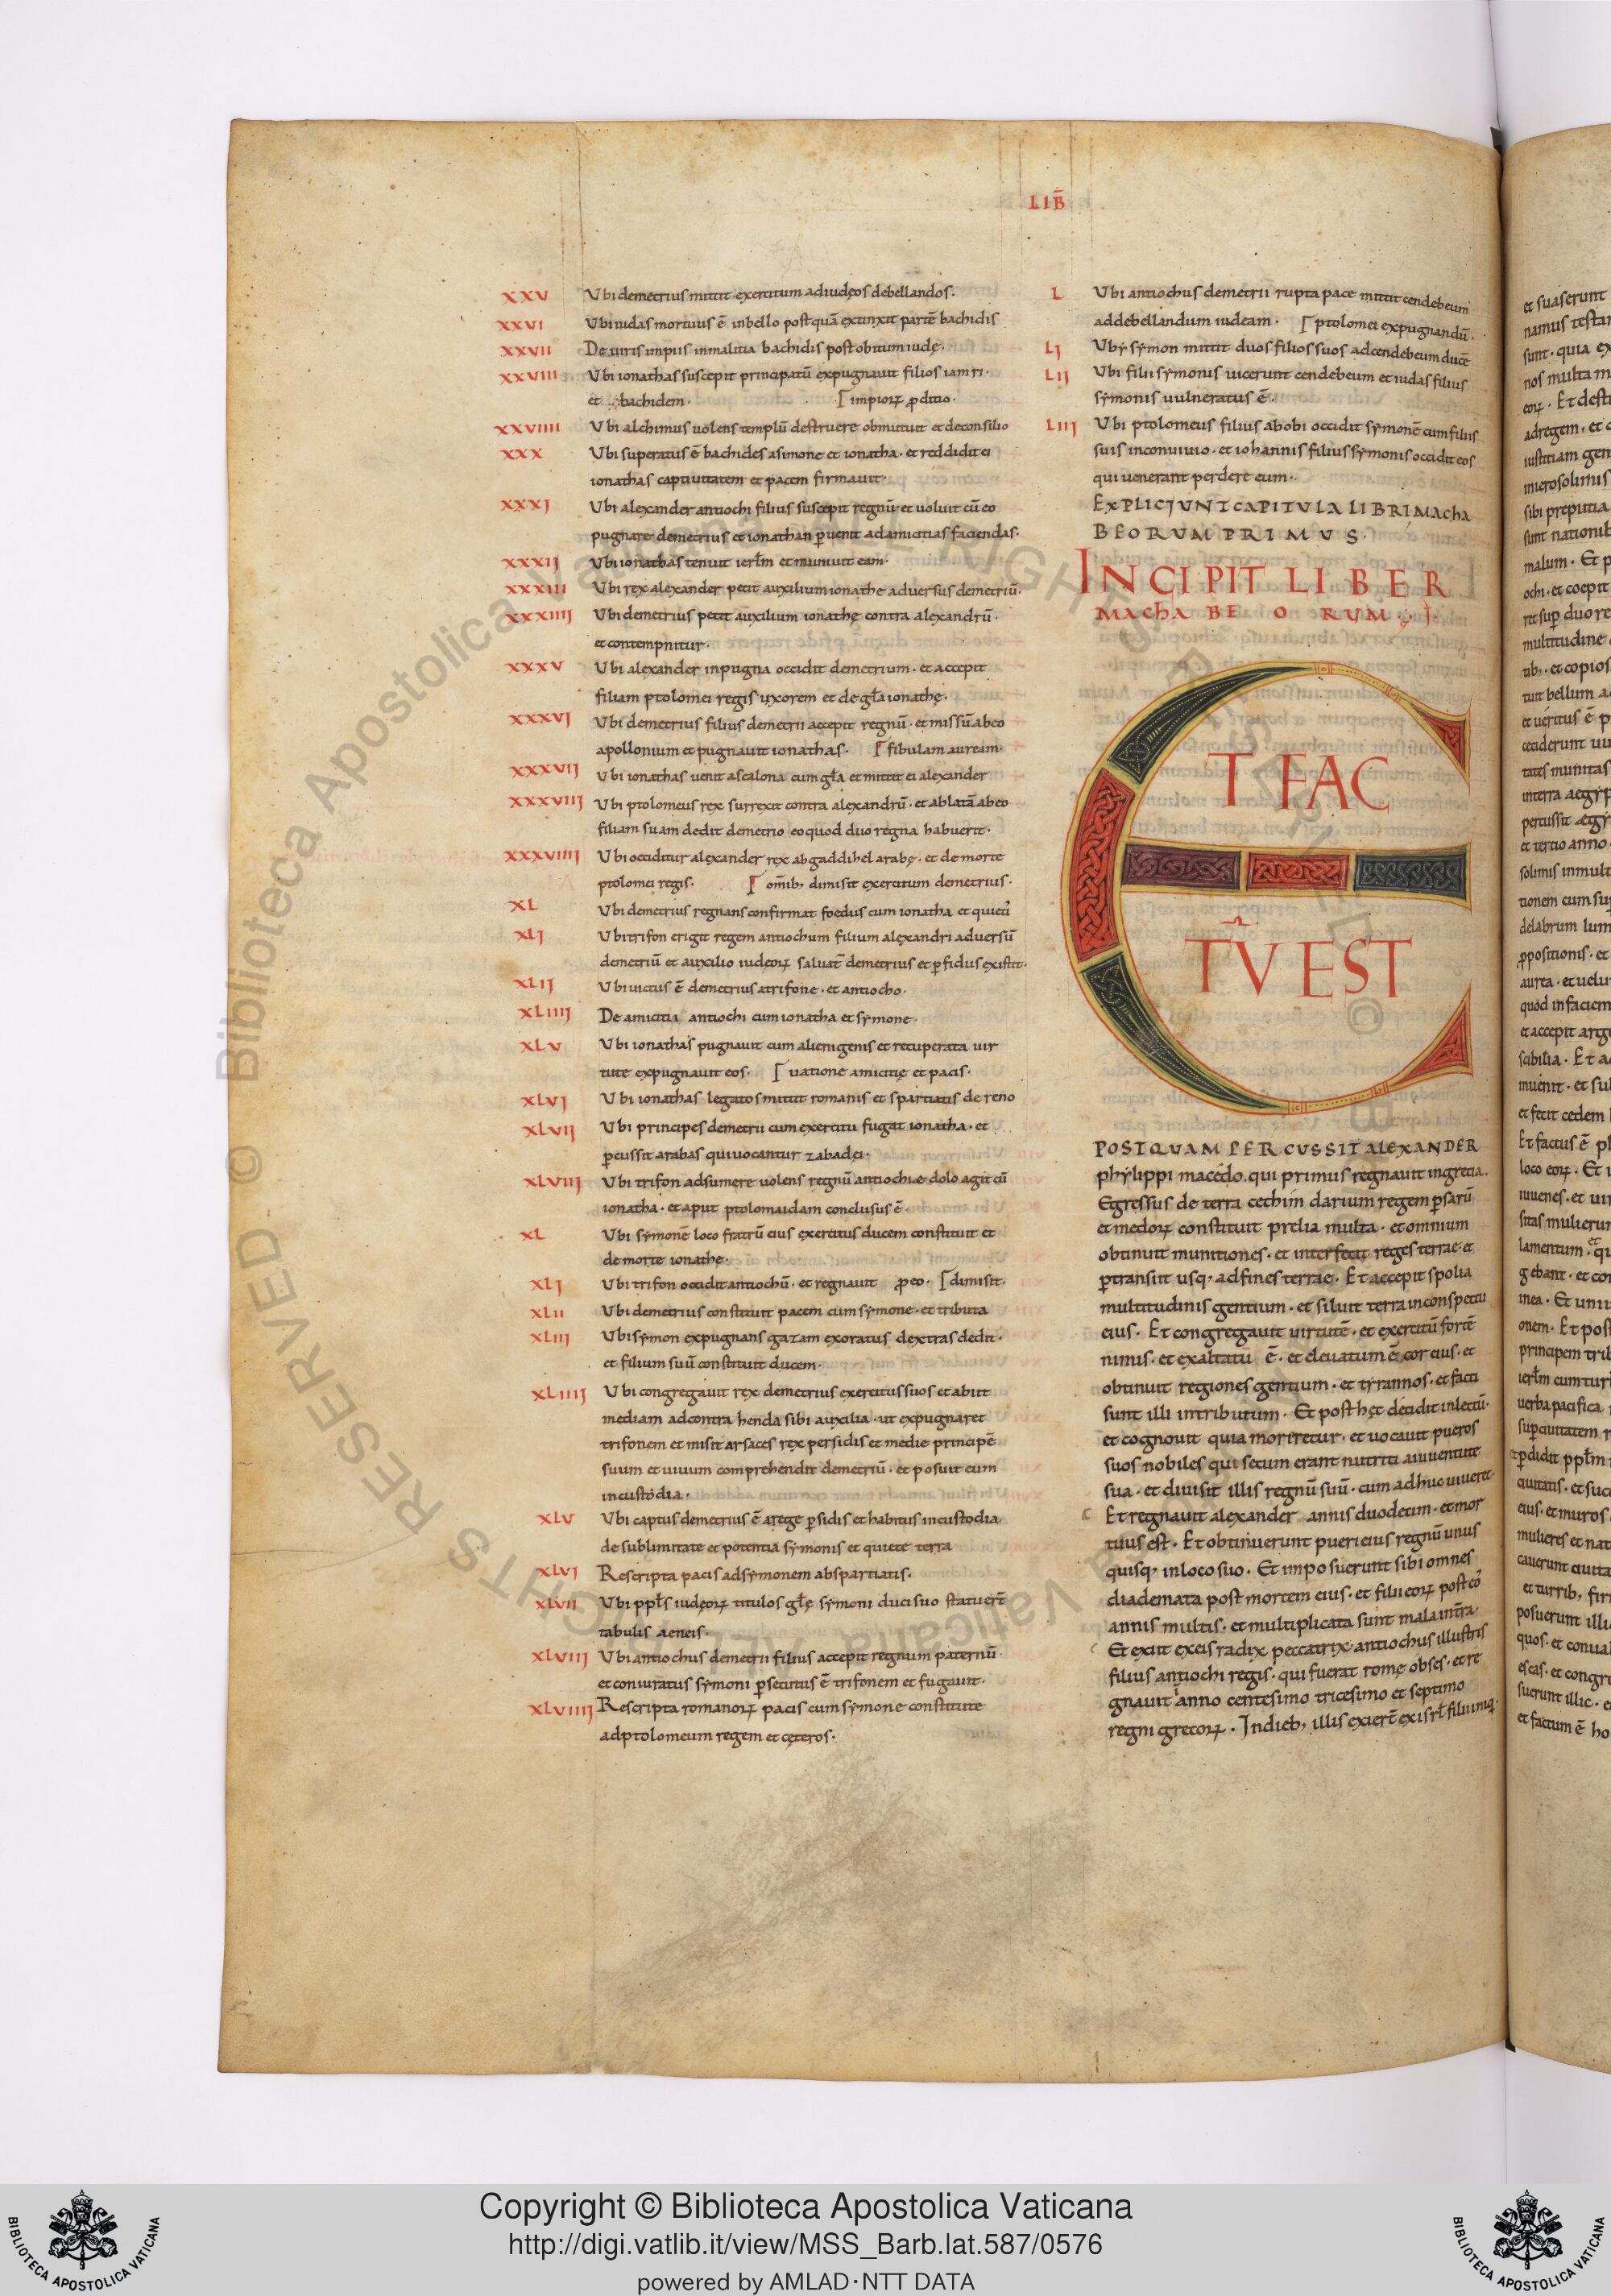 LIB̄
XXV Ubi demetrius mittit exercitum ad iudęos debellandos·
XXVI Ubi iudas mortuus ē in bello postquā extinxit partē bachidis
XXVII De uiris impiis in malitia bachidis post obitum iudę·
XXVIII Ubi ionathas suscepit principatū expugnauit filios iamri·
et bachidem· impioꝝ ꝓditio·
XXVIIII Ubi alchimus uolens templū destruere obmutuit et de consilio
XXX Ubi superatus ē bachides a simone et ionatha· et reddidit ei
ionathas captiuitatem et pacem firmauit·
XXXI Ubi alexander antiochi filius suscepit regnū et uoluit cū eo
pugnare demetrius et ionathan ꝑuenit ad amicitias faciendas·
XXXII Ubi ionathas tenuit ierłm et muniuit eam·
XXXIII Ubi rex alexander petit auxilium ionathe aduersus demetriū·
XXXIIII Ubi demetrius petit auxilium ionathę contra alexandrū·
et contempnitur·
XXXV Ubi alexander in pugna occidit demetrium· et accepit
filiam ptolomei regis uxorem et de gła ionathę·
XXXVI Ubi demetrius filius demetrii accepit regnū· et missū ab eo
apollonium et pugnauit ionathas· fibulam auream·
XXXVII Ubi ionathas uenit ascalona cum gła et mittit ei alexander
XXXVIII Ubi ptolomeus rex surrexit contra alexandrū· et ablatā ab eo
filiam suam dedit demetrio eo quod duo regna habuerit·
XXXVIIII Ubi occiditur alexander rex ab gaddihel arabę· et de morte
ptolomei regis· om̄ib; dimisit exercitum demetrius·
XL Ubi demetrius regnans confirmat foedus cum ionatha et quieti
XLI Ubi trifon erigit regem antiochum filium alexandri aduersū
demetriū et auxilio iudęoꝝ saluat̄ demetrius et ꝑfidus existit·
XLII Ubi uictus ē demetrius a trifone· et antiocho·
XLIIII De amicitia antiochi cum ionatha et symone·
XLV Ubi ionathas pugnauit cum alienigenis et recuperata uir
tute expugnauit eos· uatione amicitię et pacis·
XLVI Ubi ionathas legatos mittit romanis et spartiatis de reno
XLVII Ubi principes demetrii cum exercitu fugat ionatha· et
ꝑcussit arabas qui uocantur zabadei·
XLVIII Ubi trifon adsumere uolens regnū antiochie dolo agit cū
ionatha· et aput ptolomaidam conclusus ē·
XL Ubi symonē loco fratrū eius exercitus ducem constituit et
de morte ionathę·
XLI Ubi trifon occidit antiochū· et regnauit ꝓ eo· dimisit·
XLII Ubi demetrius constituit pacem cum symone· et tributa
XLIII Ubi symon expugnans gazam exoratus dextras dedit·
et filium suū constituit ducem·
XLIIII Ubi congregauit rex demetrius exercitus suos et abiit
mediam ad contrahenda sibi auxilia· ut expugnaret
trifonem et misit arsaces rex persidis et medie principē
suum et uiuum comprehendit demetriū· et posuit eum
in custodia·
XLV Ubi captus demetrius ē a rege ꝑsidis et habitus in custodia
de sublimitate et potentia symonis et quiete terra
XLVI Rescripta pacis ad symonem ab spartiatis·
XLVII Ubi ppłs iudęoꝝ titulos głę symoni duci suo statuer̄t
tabulis aeneis·
XLVIII Ubi antiochus demetrii filius accepit regnum paternū·
et coniuratus symoni ꝑsecutus ē trifonem et fugauit·
XLVIIII Rescripta romanoꝝ pacis cum symone constitute
ad ptolomeum regem et cęteros·
L Ubi antiochus demetrii rupta pace mittit cendebeum
ad debellandum iudeam· ptolomei expugnandū·
LI Uby symon mittit duos filios suos ad cendebeum ducē
LII Ubi filii symonis uicerunt cendebeum et iudas filius
symonis uulneratus ē·
LIII Ubi ptolomeus filius abobi occidit symonē cum filiis
suis in conuiuio· et iohannis filius symonis occidit eos
qui uenerant perdere eum·
EXPLICIUNT CAPITULA LIBRI MACHA
BEORUM PRIMUS·
INCIPIT LIBER
MACHABEORUM· I·
ET FAC
TV̄ EST
POSTQUAM PERCUSSIT ALEXANDER
phylippi macedo· qui primus regnauit in grecia·
Egressus de terra cethim darium regem ꝑsarū
et medoꝝ constituit prelia multa· et omnium
obtinuit munitiones· et interfecit reges terrae· et
ꝑtransiit usq; ad fines terrae· Et accepit spolia
multitudinis gentium· et siluit terra in conspectu
eius· Et congregauit uirtutē· et exercitū fortē
nimis· et exaltatū ē· et eleuatum ē cor eius· et
obtinuit regiones gentium· et tyrannos· et facti
sunt illi in tributum· Et post hęc decidit in lectū·
et cognouit quia moriretur· et uocauit pueros
suos nobiles qui secum erant nutriti a iuuentute
sua· et diuisit illis regnū suū· cum adhuc uiueret·
Et regnauit alexander annis duodecim· et mor
tuus est· Et obtinuerunt pueri eius regnū unus
quisq; in loco suo· Et imposuerunt sibi omnes
diademata post mortem eius· et filii eoꝝ post eos
annis multis· et multiplicata sunt mala in tr̄a·
Et exiit ex eis radix peccatrix· antiochus illustris
filius antiochi regis· qui fuerat romę obses· et re
gnauit anno centesimo tricesimo et septimo
regni grecoꝝ· In dieb; illis exier̄t ex isrł filii iniq
et suaserunt
sunt· quia ex
nos multa m
eoꝝ· Et dest
ad regem· et
iustitiam gen
in ierosolimis
sibi preputia
malum· Et p
ochi· et coepit
multitudine
tuit bellum
et ueritus ē p
ceciderunt uu
tates munitas
in terra aegyp
percussit aegy
et tertio anno
solimis in mult
tionem cum su
delabrum lum
ꝓpositionis· et
aurea· et uelu
quod in faciem
et accepit arg
inuenit· et
et fecit cedem
Et factus ē
loco eoꝝ· Et
iuuenes· et
lamentum·
inea· Et
onem· Et post
principem trib
uerba pacifica
ciuitatis· et
eius· et muros
mulieres et nat
posuerunt illi
quos· et
escas· et congr
et factum ē ho
Copyright © Biblioteca Apostolica Vaticana
http://digi.vatlib.it/view/MSS_Barb.lat.587/0576
powered by AMLAD·NTT DATA
BIBLIOTECA APOSTOLICA VATICANA
BIBLIOTECA APOSTOLICA VATICANA
© Biblioteca Apostolica Vaticana ALL RIGHTS RESERVED